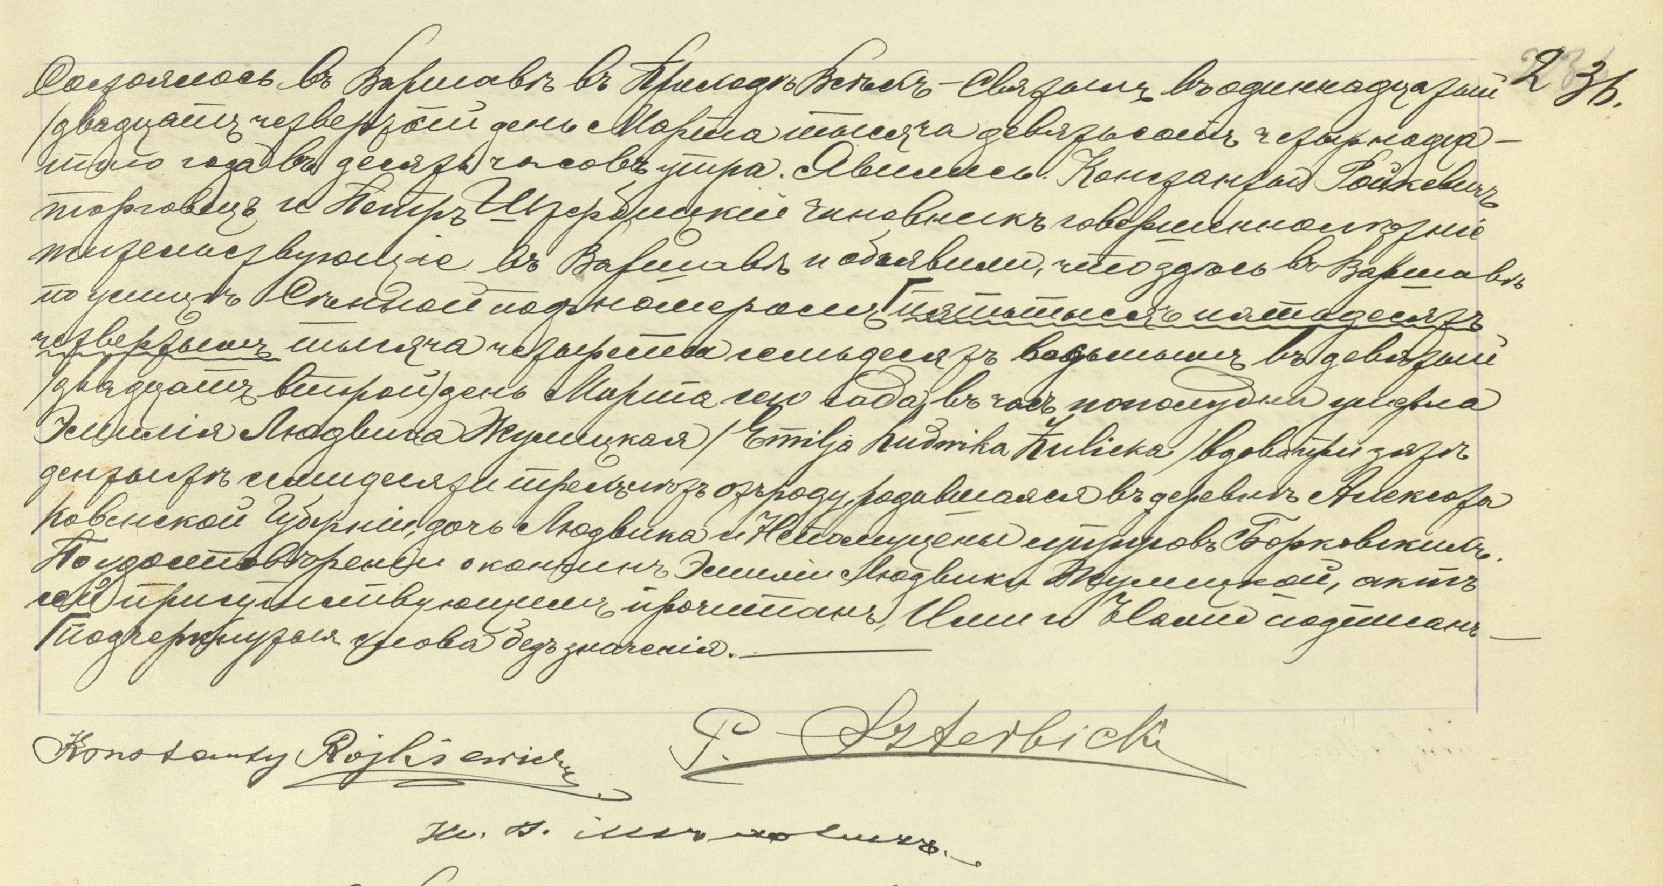 Состоялось въ Варшавѣ въ Приходѣ Всѣхъ-Святыхъ въ одиннадцатый
/двадцать четвертый день Марта тысяча девятьсотъ четырнадца-
таго года въ десять часовъ утра. Явились Константый Ройкевичъ
торговецъ и Петръ Щтербицкій чиновникъ совершеннолѣтніе
жительствующіе въ Варшавѣ и объявили, что здѣсь въ Варшавѣ
по улицѣ Сѣнной подъ номеромъ Г пятьтысячъ пятьдесятъ
четвертымъ тысяча четыреста семьдесятъ восьмымъ въ девятый
/двадцать второй/ день Марта сего года, въ часъ пополудни умерла
Эмилія Людвика Жулицкая /Emilja Ludwika Żulicka/ вдова при зятѣ
семидесяти трехъ лѣтъ отъ роду, родившаяся въ деревнѣ
Ковенской Губерніи, дочь Людвика и Непомуцены супруговъ Борковскихъ.
По удостовѣреніи о кончинѣ Эмиліи Людвики Жулицкой, актъ
сей присутствующимъ прочитанъ, Ими и Нами подписанъ —
Г подчеркнутыя слова безъ значенія. —
2 36.
Konstanty Rojkiewicz
P. Szterbicki